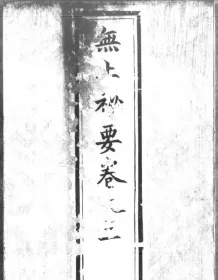 無上祕要卷之三